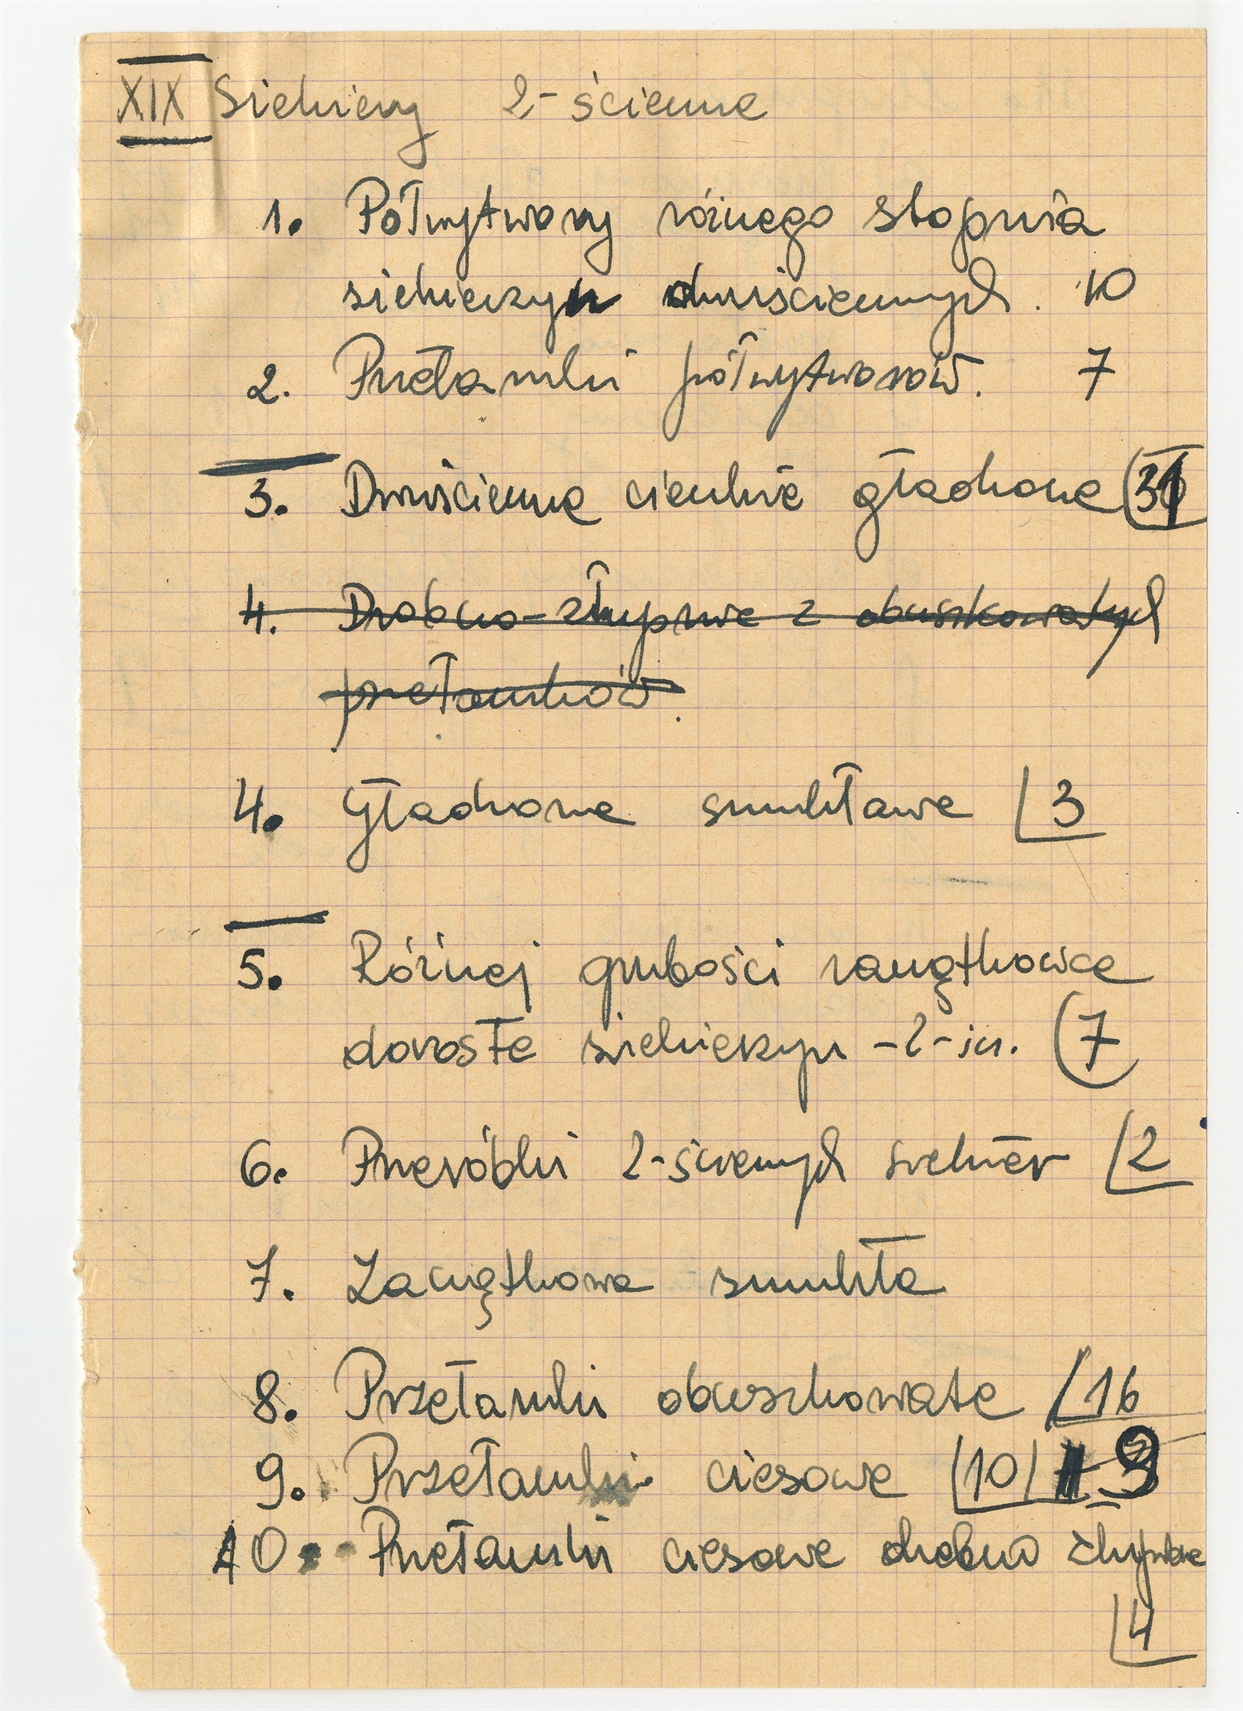 XIX Siekiery 2-ścienne
1. Półwytwory różnego stopnia
siekierzyn dwuściennych. 10
2. Przełamki półwytworów. 7
3. Dwuścienne cienkie gładzone 31
4. Drobno-złupne z obuszkowatych
przełamków.
4. Gładzone smukławe 3
5. Różnej grubości zaczątkowce
dorosłe siekierzyn -2-śc. 7
6. Przeróbki 2-ściennych siekier 2
7. Zaczątkowa smukła
8. Przełamki obuszkowate 16
9. Przełamki ciesowe 10 9
10. Przełamki ciesowe drobno złupne
4